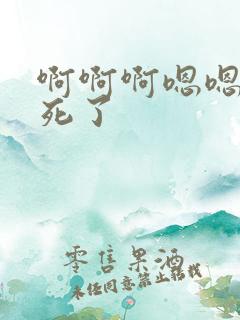 啊啊啊嗯嗯
死了
零售果酒
未经同意禁止转载